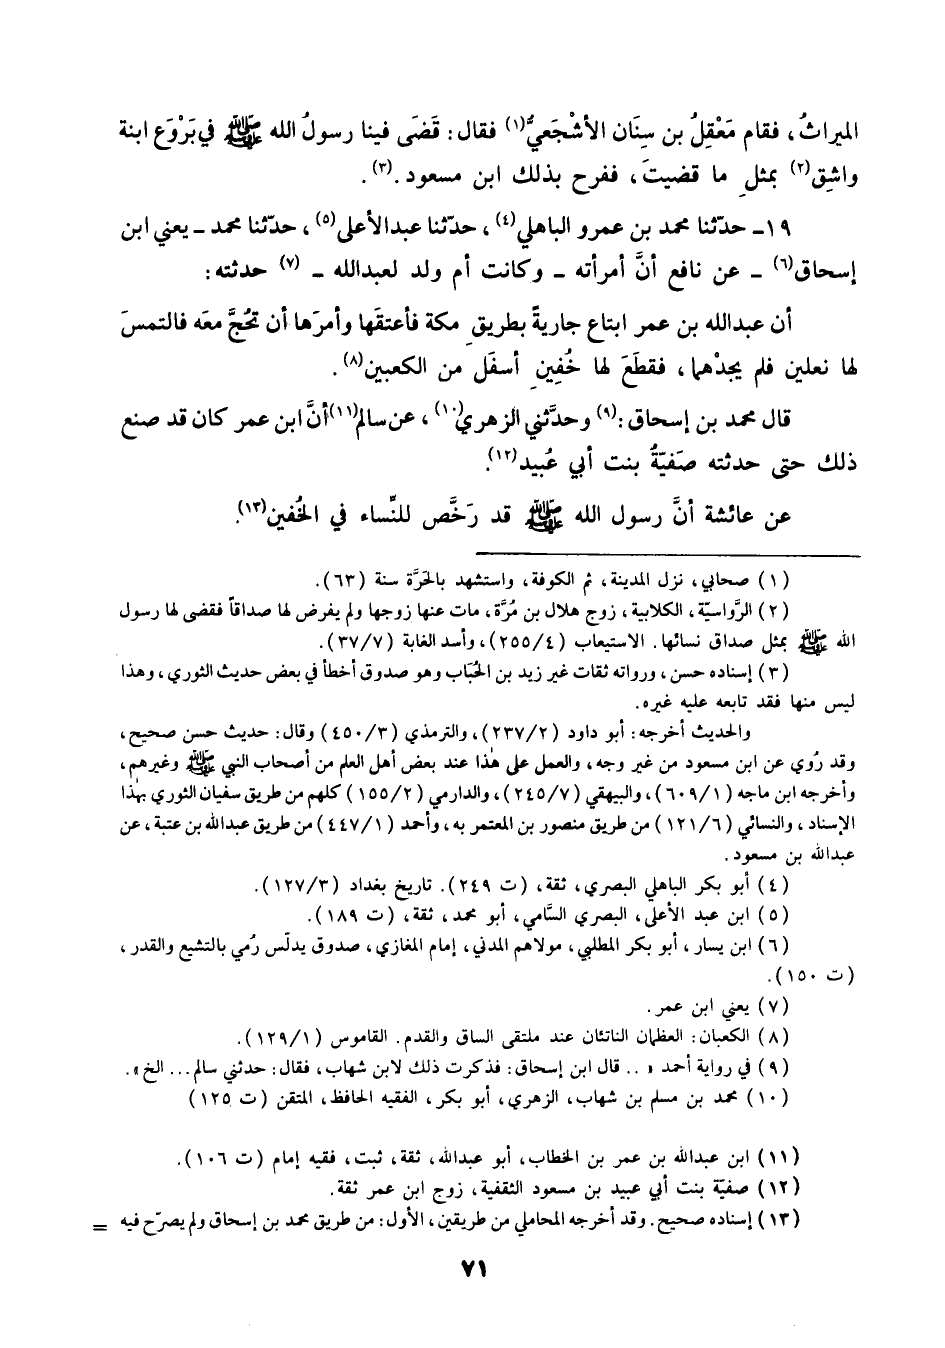 الميراثُ، فقام مَعْقِلُ بن سِنَان الأشْجَعيُّ(١) فقال: قَضَى فينا رسولُ الله ﷺ في بَرْوَع ابنة
واشِق(٢) بمثلِ ما قضيتَ، ففرح بذلك ابن مسعود.(٣).
١٩ـ حدّثنا محمد بن عمرو الباهلي(٤)، حدّثنا عبدالأعلى(٥)، حدّثنا محمد ـ يعني ابن
إسحاق(٦) ـ عن نافع أنَّ أمرأته ـ وكانت أم ولد لعبدالله ـ (٧) حدثته:
أن عبدالله بن عمر ابتاع جاريةً بطريقِ مكة فأعتقَها وأمرَها أن تحُجَّ معَه فالتمسَ
لها نعلين فلم يجدْهما، فقطَعَ لها خُفينِ أسفَل من الكعبين(٨).
قال محمد بن إسحاق:(٩) وحدَّثني الزهري(١٠)، عن سالم(١١) أنَّ ابن عمر كان قد صنع
ذلك حتى حدثته صَفيّةُ بنت أبي عُبيد(١٢).
عن عائشة أنَّ رسول الله ﷺ قد رَخَّص للنِّساء في الخُفين(١٣).
(١) صحابي، نزل المدينة، ثم الكوفة، واستشهد بالحَرَّة سنة (٦٣).
(٢) الرَّواسيّة، الكلابية، زوج هلال بن مُرَّة، مات عنها زوجها ولم يفرض لها صداقاً فقضى لها رسول
الله ﷺ بمثل صداق نسائها. الاستيعاب (٢٥٥/٤)، وأسد الغابة (٣٧/٧).
(٣) إسناده حسن، ورواته ثقات غير زيد بن الحُبَاب وهو صدوق أخطأ في بعض حديث الثوري، وهذا
ليس منها فقد تابعه عليه غيره.
والحديث أخرجه: أبو داود (٢٣٧/٢)، والترمذي (٤٥٠/٣) وقال: حديث حسن صحيح،
وقد رُوي عن ابن مسعود من غير وجه، والعمل على هٰذا عند بعض أهل العلم من أصحاب النبي ﷺ وغيرهم،
وأخرجه ابن ماجه (٦٠٩/١)، والبيهقي (٢٤٥/٧)، والدارمي (١٥٥/٢) كلهم من طريق سفيان الثوري بهٰذا
الإسناد، والنسائي (١٢١/٦) من طريق منصور بن المعتمر به، وأحمد (٤٤٧/١) من طريق عبدالله بن عتبة، عن
عبدالله بن مسعود.
(٤) أبو بكر الباهلي البصري، ثقة، (ت ٢٤٩). تاريخ بغداد (١٢٧/٣).
(٥) ابن عبد الأعلى، البصري السَّامي، أبو محمد، ثقة، (ت ١٨٩).
(٦) ابن يسار، أبو بكر المطلبي، مولاهم المدني، إمام المغازي، صدوق يدلّس رُمي بالتشيع والقدر،
(ت ١٥٠).
(٧) يعني ابن عمر.
(٨) الكعبان: العظمان الناتئان عند ملتقى الساق والقدم. القاموس (١٢٩/١).
(٩) في رواية أحمد «.. قال ابن إسحاق: فذكرت ذلك لابن شهاب، فقال: حدثني سالم... الخ».
(١٠) محمد بن مسلم بن شهاب، الزهري، أبو بكر، الفقيه الحافظ، المتقن (ت ١٢٥)
(١١) ابن عبدالله بن عمر بن الخطاب، أبو عبدالله، ثقة، ثبت، فقيه إمام (ت ١٠٦).
(١٢) صفيّة بنت أبي عبيد بن مسعود الثقفية، زوج ابن عمر ثقة.
(١٣) إسناده صحيح. وقد أخرجه المحاملي من طريقين، الأول: من طريق محمد بن إسحاق ولم يصرّح فيه =
٧١